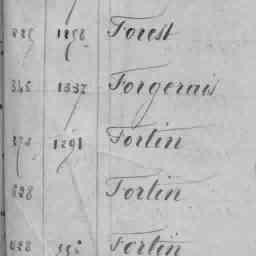 1298 Forest
345 1337 Forgerais
1291 Fortin
828 Fortin
828 Fortin